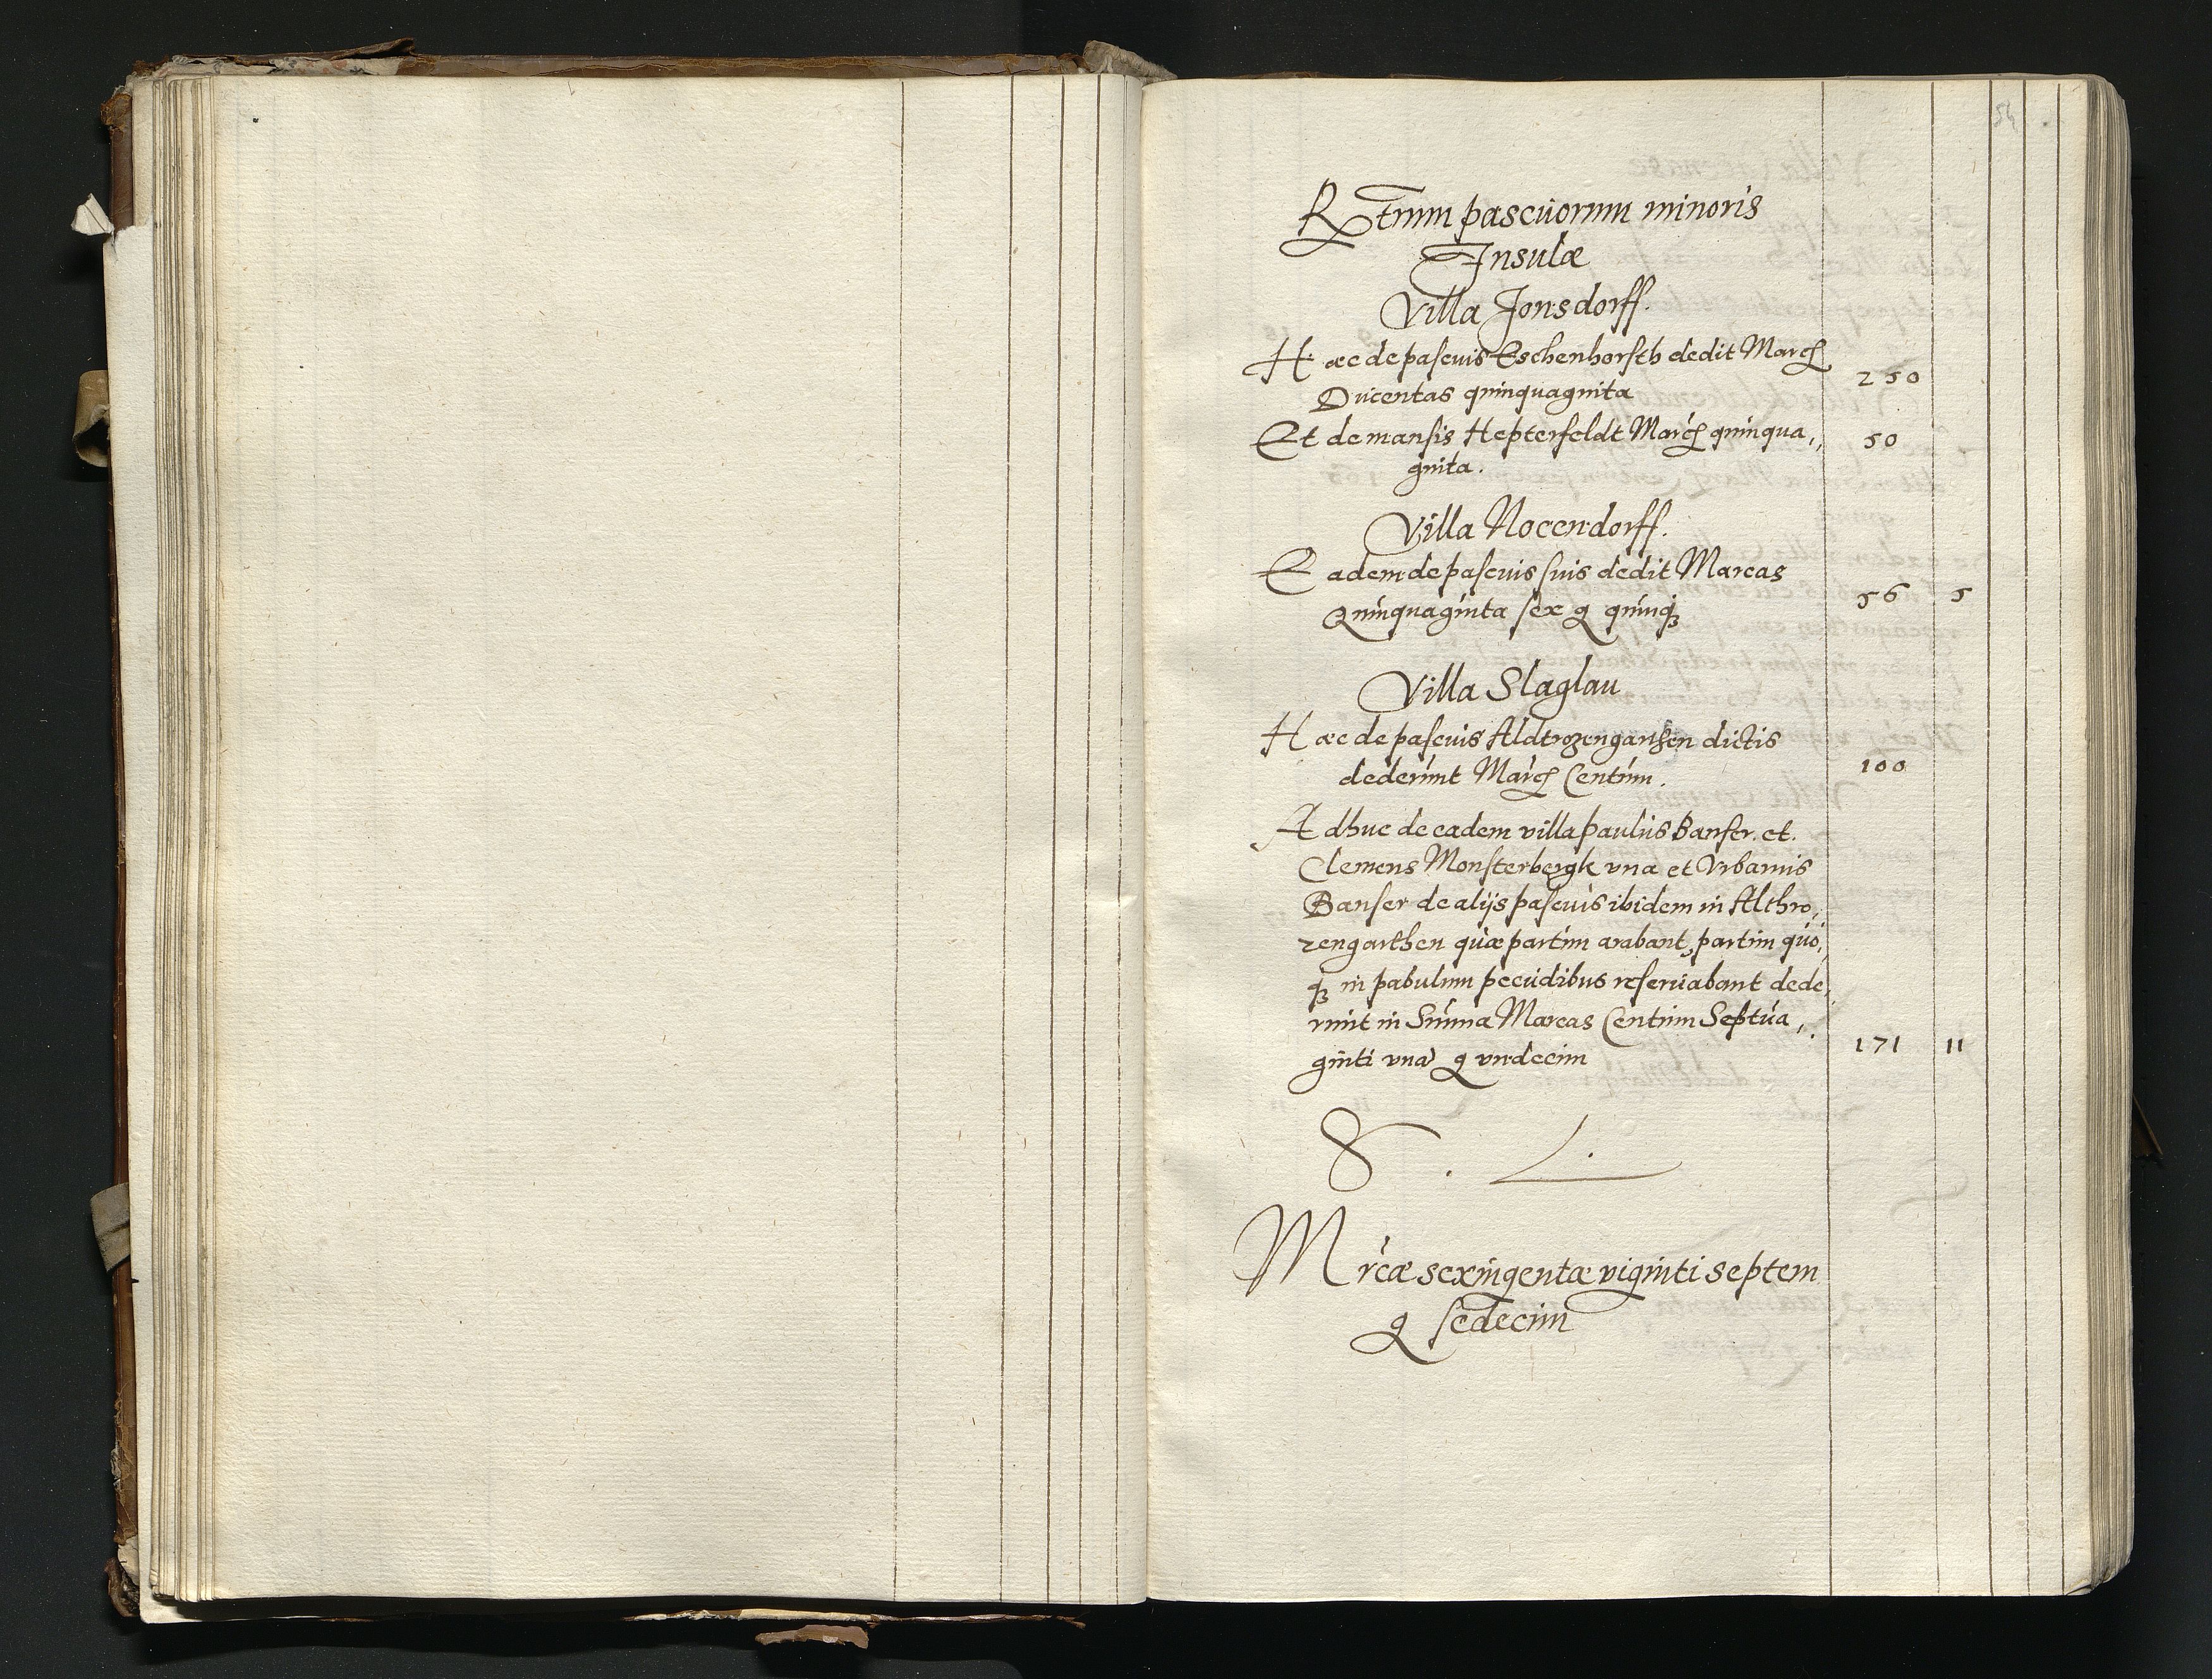 Rtrum pascuorum minoris
Insulæ
Villa Jonsdorff.
Hæc de pascuis Eschenhorsth dedit Marc
Ducentas quinquaginta 250
Et de mansis Hepterfeldt Marc quinqua,, 50
ginta.
Villa Nocendorff.
Eadem de pascuis suis dedit Marcas
Quinquaginta sex g quinq3 56 5
Villa Slaglau
Hæc de pascuis Aldtrozengarthen dictis
dederunt Marc Centum. 100
Adhuc de eadem villa paulus Banser. et.
Clemens Monsterbergk vna et Vrbanus
Banser de alijs pascuis ibidem in Althro,,
zengarthen quæ partim arabant, partim quo,,
q3 in pabulum pecudibus reseruabant dede,,
runt in Suma Marcas Centum Septua,,
ginti vna g vndecim 171 11
S. L.
Mrcæ sexingentæ viginti septem
g sedecim